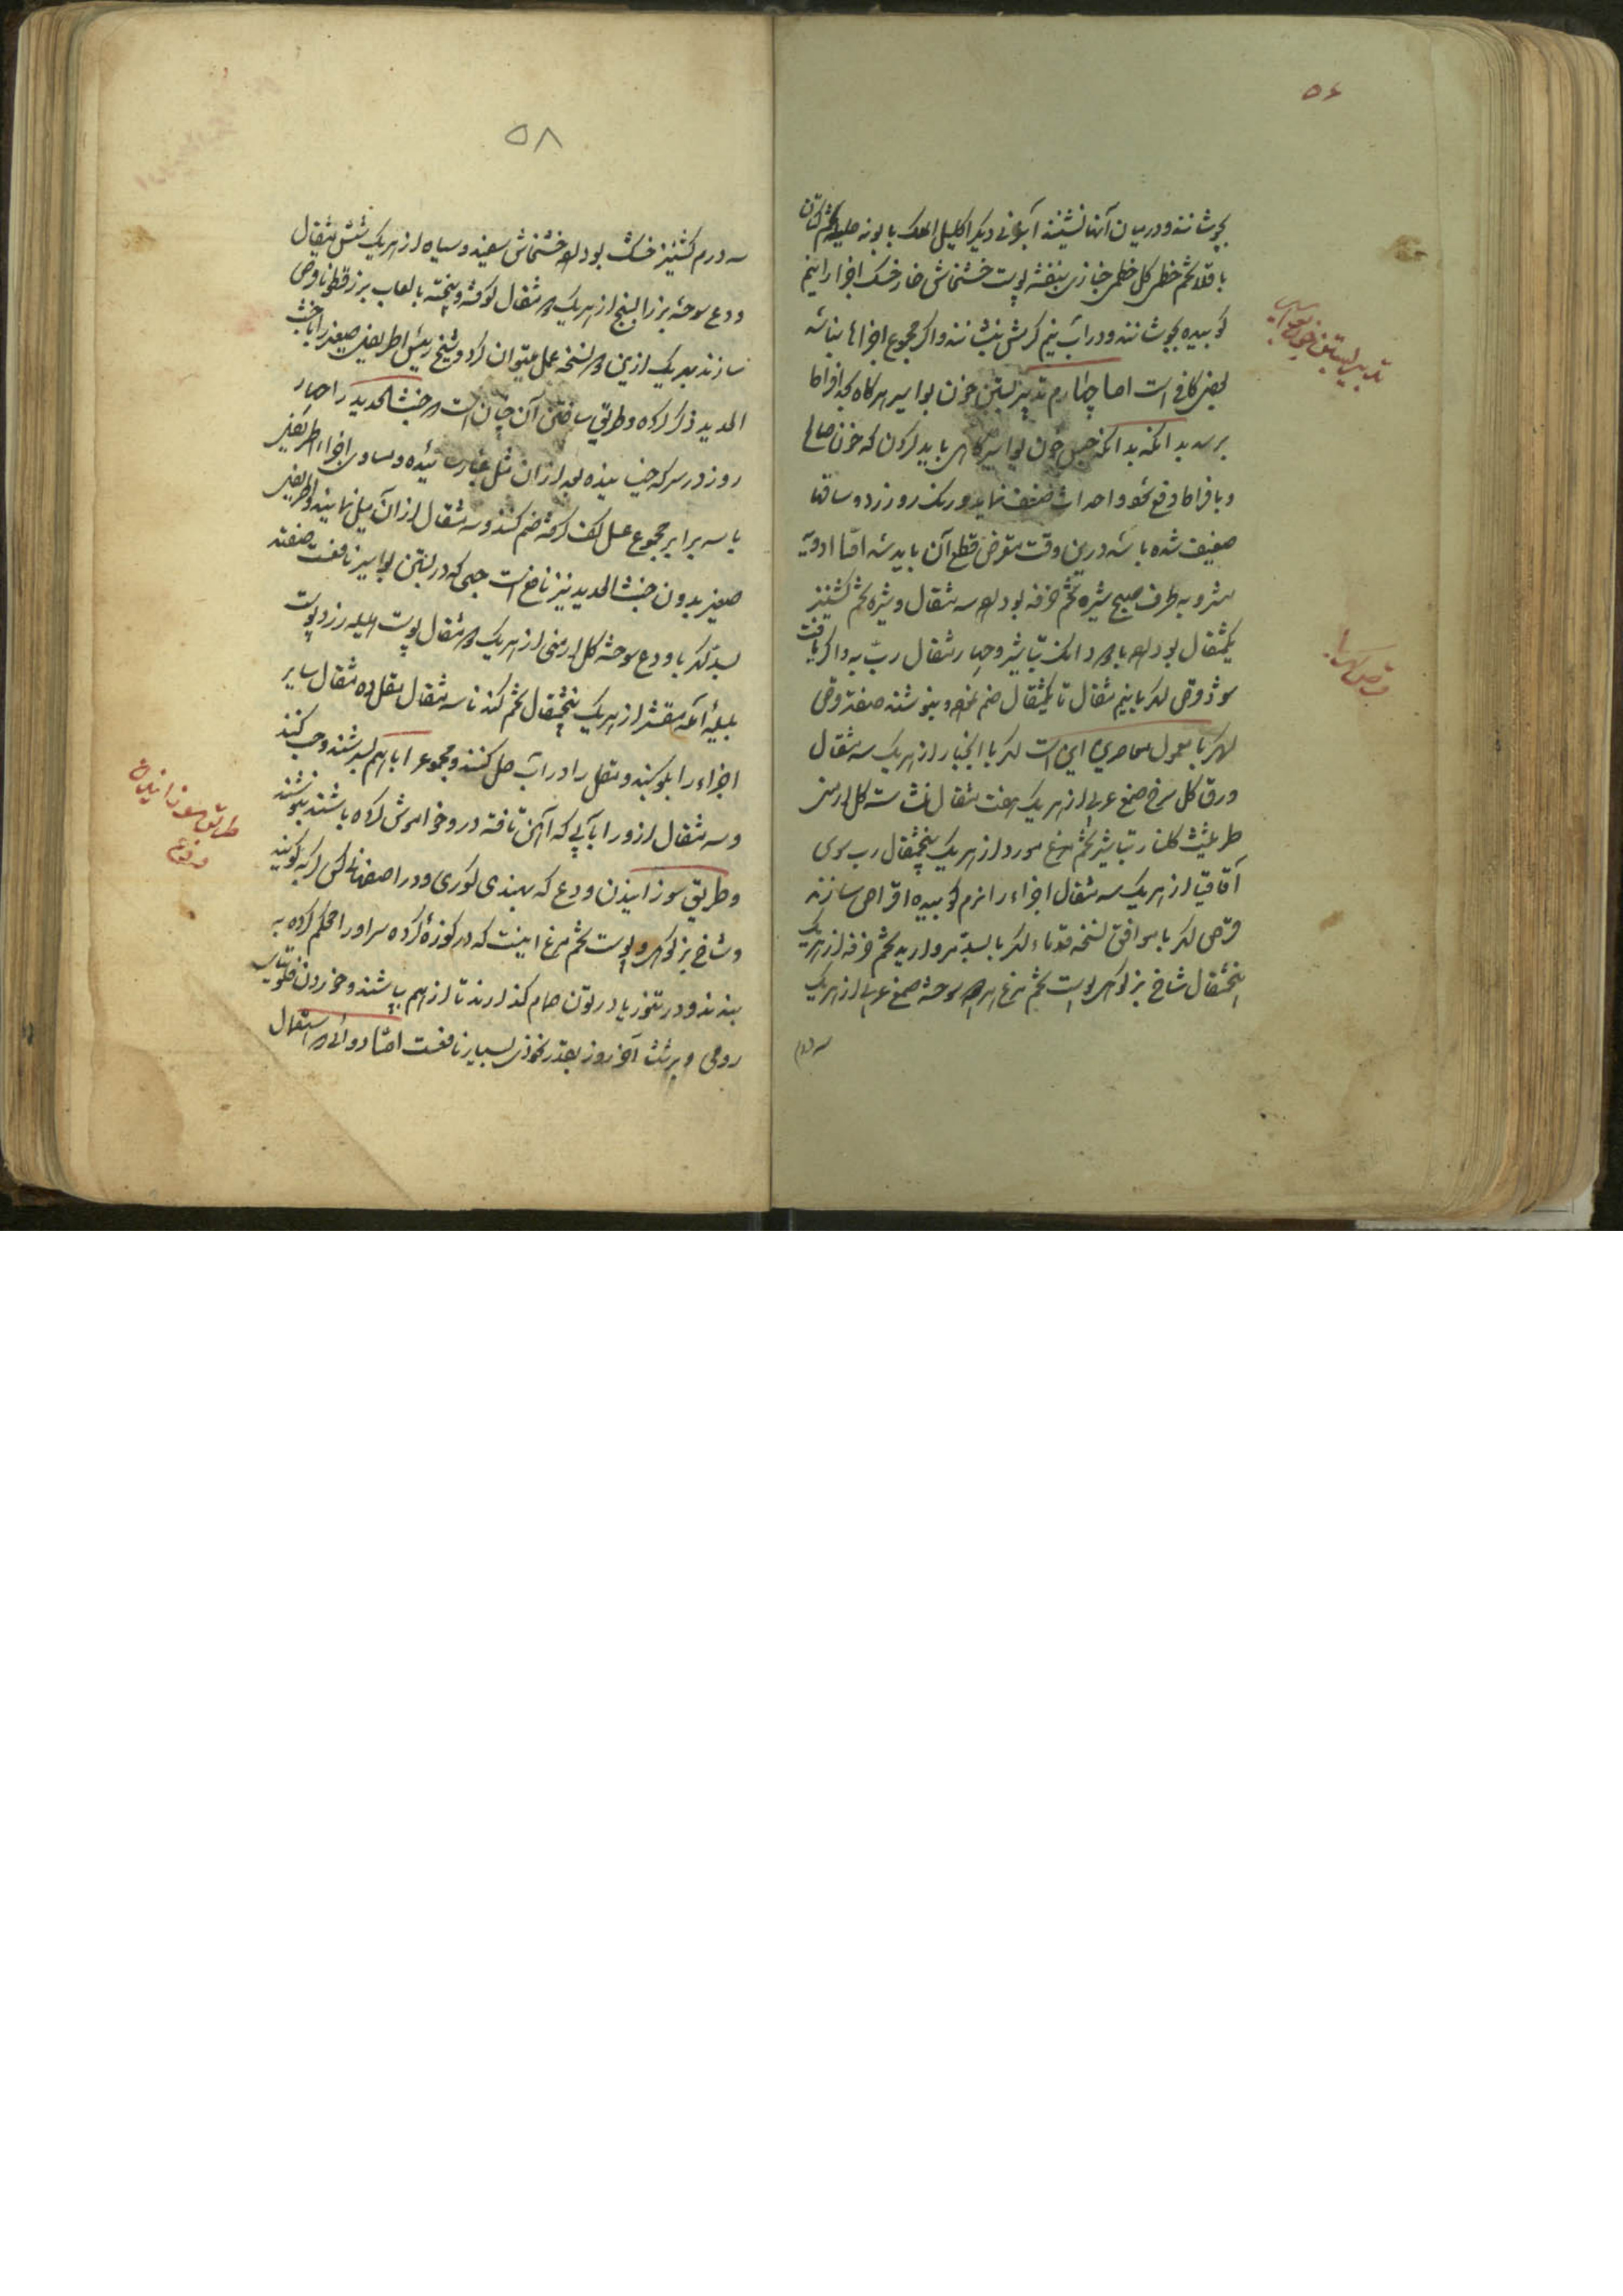 ۵۶
بجوشانند و در میان آنها نشینند آبزنی دیگر اکلیل الملک بابونه حلبه تخم کتان
باقلا تخم خطمی گل خطمی خبازی بنفشه پوست خشخاش خارخسک اجزا را نیم
کوبیده بجوشانند و در آب نیم گرمش بنشانند و اگر مجموع اجزاها نباشد
بعضی کافی است اما چهارم تدبیر بستن خون بواسیر هرگاه بحد افراط
برسد بدانکه حبس خون بواسیر گاهی باید کردن که خون صالح
و بافراط دفع شود و احداث ضعف نماید و رنگ رو زرد و ساقها
ضعیف شده باشد درین وقت متعرض قطع آن باید شد اما ادویه
مشروبه ظرف صبح شیره تخم خرفه بو داده سه مثقال و شیره تخم گشنیز
یکمثقال بو داده با دو دانک تباشیر و چهار مثقال رب به و اگر یافت
شود قرص کهربا نیم مثقال تا یکمثقال ضم نموده بنوشند صفت قرص
کهربا معمول معاصرین این است کهربا انجبار از هریک سه مثقال
ورق گل سرخ صمغ عربی از هریک هفت مثقال نشاسته گل ارمنی
طرثیث گلنار تباشیر تخم مورد از هریک پنجمثقال رب سوس
آقاقیا از هریک سه مثقال اجزاء را نرم کوبیده اقراص سازند
قرص کهربا موافق نسخه قدماء کهربا بسد مروارید تخم خرفه از هریک
پنجمثقال شاخ بز کوهی پوست تخم مرغ سوخته صمغ عربی از هریک
سه درم
تدبیر بستن خون بواسیر
قرص کهربا
۵۸
سه درم گشنیز خشک بو داده خشخاش سفید و سیاه از هریک شش مثقال
ودع سوخته بزرالبنج از هریک دو مثقال کوفته و بیخته بالعاب بزرقطونا قرص
سازند بهریک ازین دو نسخه عمل میتوان کرد و شیخ رئیس اطریفل صغیر را با خبث
الحدید ذکر کرده و طریق ساختن آن چنان است که خبث الحدید را چهار
روز در سرکه خیسانیده بعد از آن مثل غبار سائیده و مساوی اجزاء اطریفل
با سه برابر مجموع عسل کف گرفته ضم کنند و سه مثقال از آن میل نمایند و اطریفل
صغیر بدون خبث الحدید نیز نافع است حبی که در بستن بواسیر نافعست صفته
بسد کهربا ودع سوخته گل ارمنی از هریک دو مثقال پوست هلیله زرد پوست
بلیله آمله مقشر از هریک پنجمثقال تخم گندنا سه مثقال مقل ده مثقال سایر
اجزاء را بکوبند و مقل را در آب حل کنند و مجموع را باهم بسرشند و حب کنند
و سه مثقال از او را با آبی که آهن تافته در و خاموش کرده باشند بنوشند
و طریق سوزانیدن ودع که بهندی کوری و در اصفهان کس گربه گویند
و شاخ بز کوهی و پوست تخم مرغ اینست که در کوزه کرده سر او را محکم کرده به
بندند و در تنور یا در تون حمام گذارند تا از هم بپاشند و خوردن فلونیای
رومی و برشعثا آخر روز بقدر نخودی بسیار نافعست اما دوائی استعمال
طریق سوزانیدن
ودع